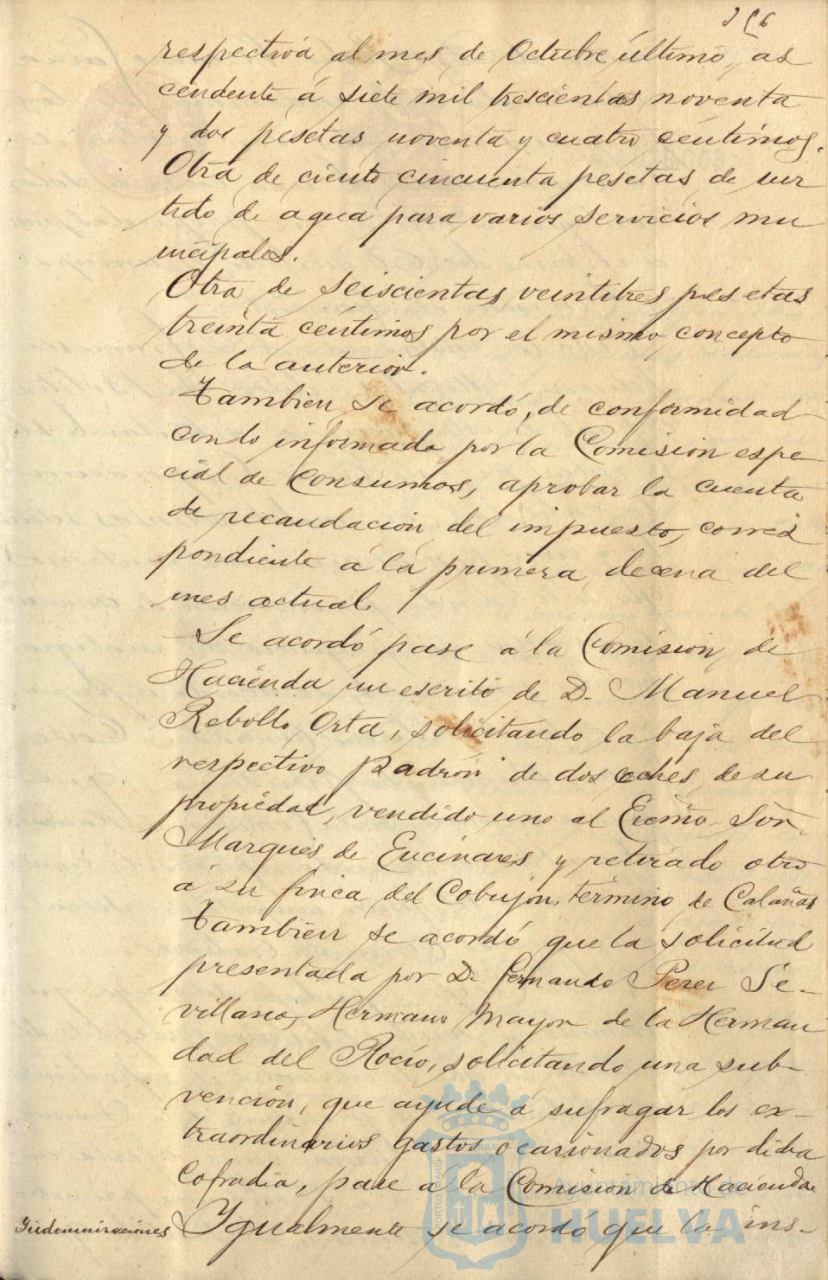 respectiva al mes de Octubre último, as
cendente á siete mil trescientas noventa
y dos pesetas noventa y cuatro céntimos.
Otra de ciento cincuenta pesetas de sur
tido de agua para varios servicios mu
nicipales.
Otra de seiscientas veintitres pesetas
treinta céntimos por el mismo concepto
de la anterior.
Tambien se acordó, de conformidad
con lo informado por la Comision espe
cial de Consumos, aprobar la cuenta
de recaudación del impuesto, corres
pondiente á la primera decena del
mes actual.
Se acordó pase á la Comision de
Hacienda un escrito de D. Manuel
Rebollo Orta, solicitando la baja del
respectivo padrón de dos coches de su
propiedad, vendido uno al Excmo Sor
Marqués de Encinares y retirado otro
á su finca del Cobujon, término de Calañas
Tambien se acordó que la solicitud
presentada por D. Fernando Perez Se-
villano, Hermano Mayor de la Herman
dad del Rocío, solicitando una sub-
vención, que ayude á sufragar los ex-
traordinarios gastos ocasionados por dicha
Cofradia, pase á la Comision de Hacienda
Yndemnizaciones Ygualmente se acordó que la ins-
Ayuntamiento de
HUELVA